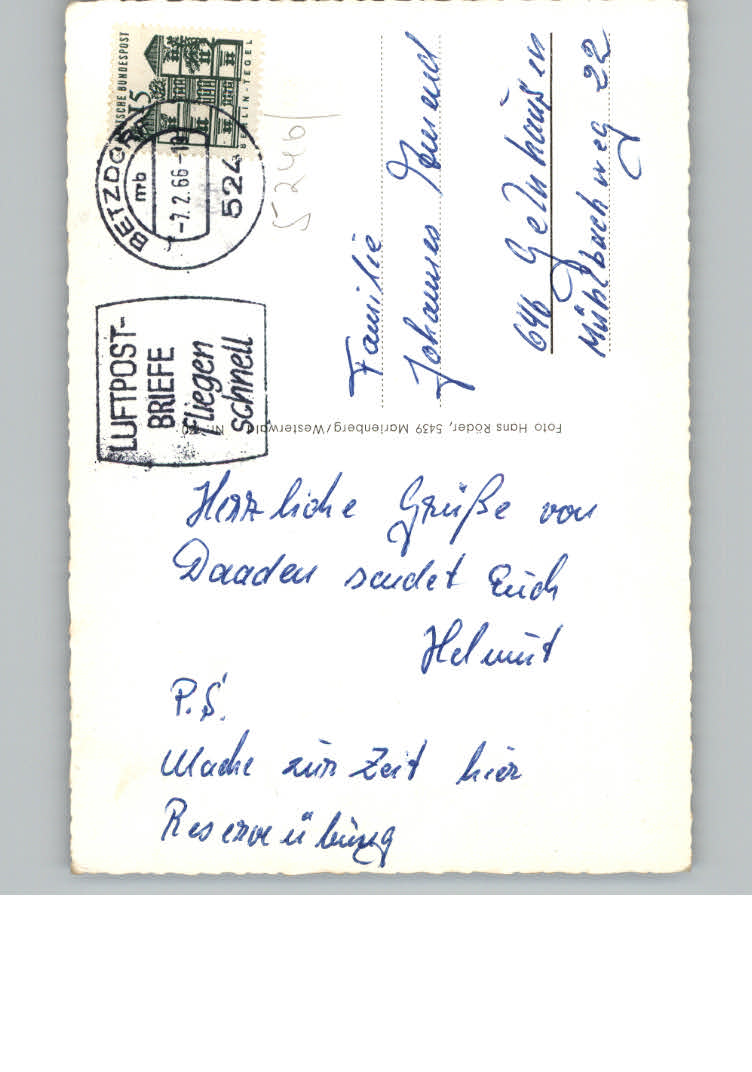 DEUTSCHE BUNDESPOST
15
BERLIN-TEGEL
BETZDORF
mb
-7.2.66-18
524
5240
LUFTPOST-
BRIEFE
fliegen
schnell
Familie
Johannes
646 Gelnhausen
Mühlbachweg 22
Foto Hans Röder, 5439 Marienberg/Westerwald Nr.
Herzliche Grüße von
Daaden sendet Euch
Helmut
P.S.
Mache zur Zeit hier
Reserveübung